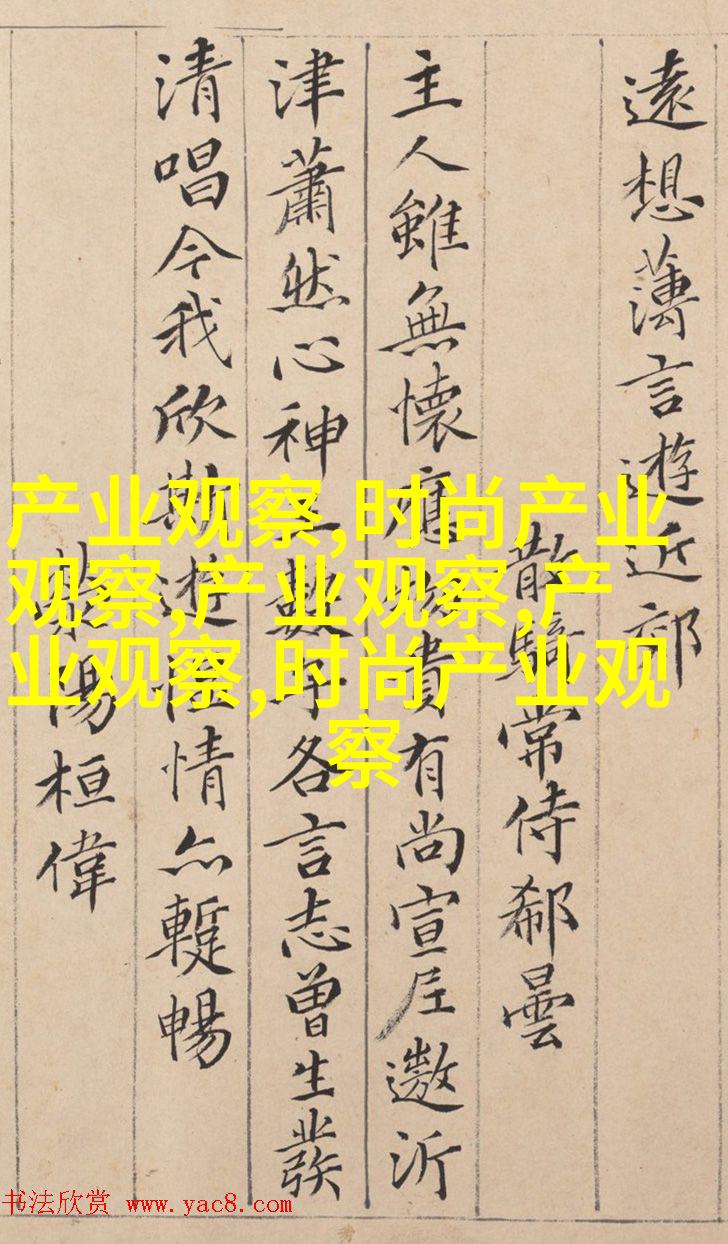 遠想薄言遊近郊
散騎常侍郗曇
主人雖無懷應貴有尚宣尼遨沂
津蕭然心神數子各言志曾生發
清唱今我欣斯遊情亦蹔暢
陽桓偉
产业观察,时尚产业
观察,产业观察,产
业观察,时尚产业观
察
书法欣赏 www.yac8.com